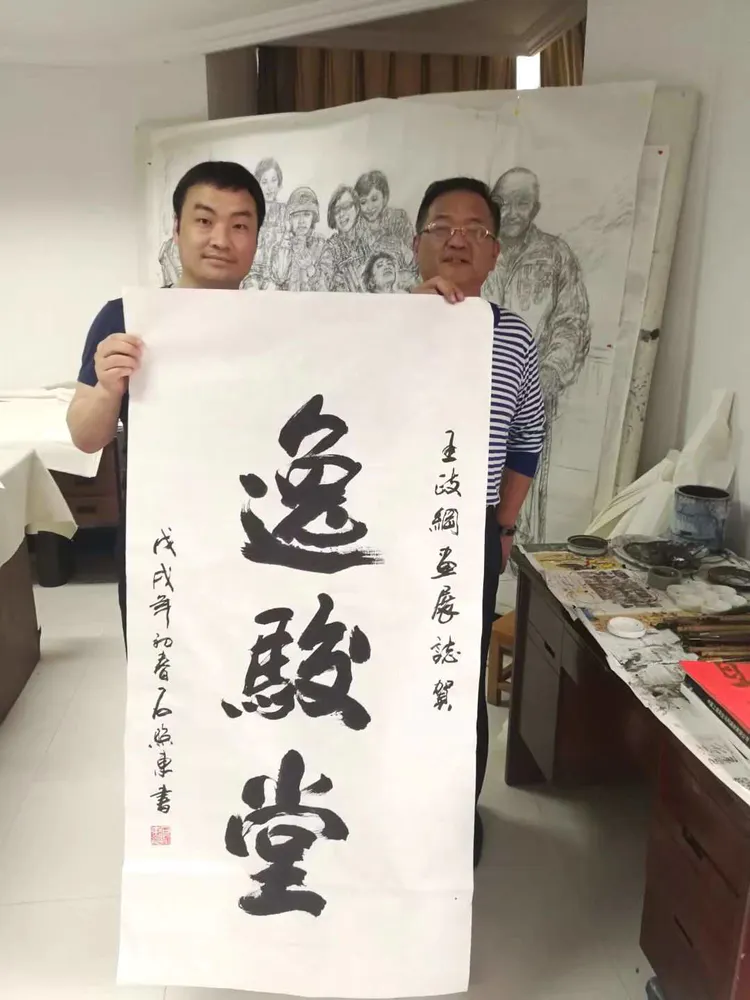 王政綱画展誌賀
逸駿堂
戊戌年初春石照東書